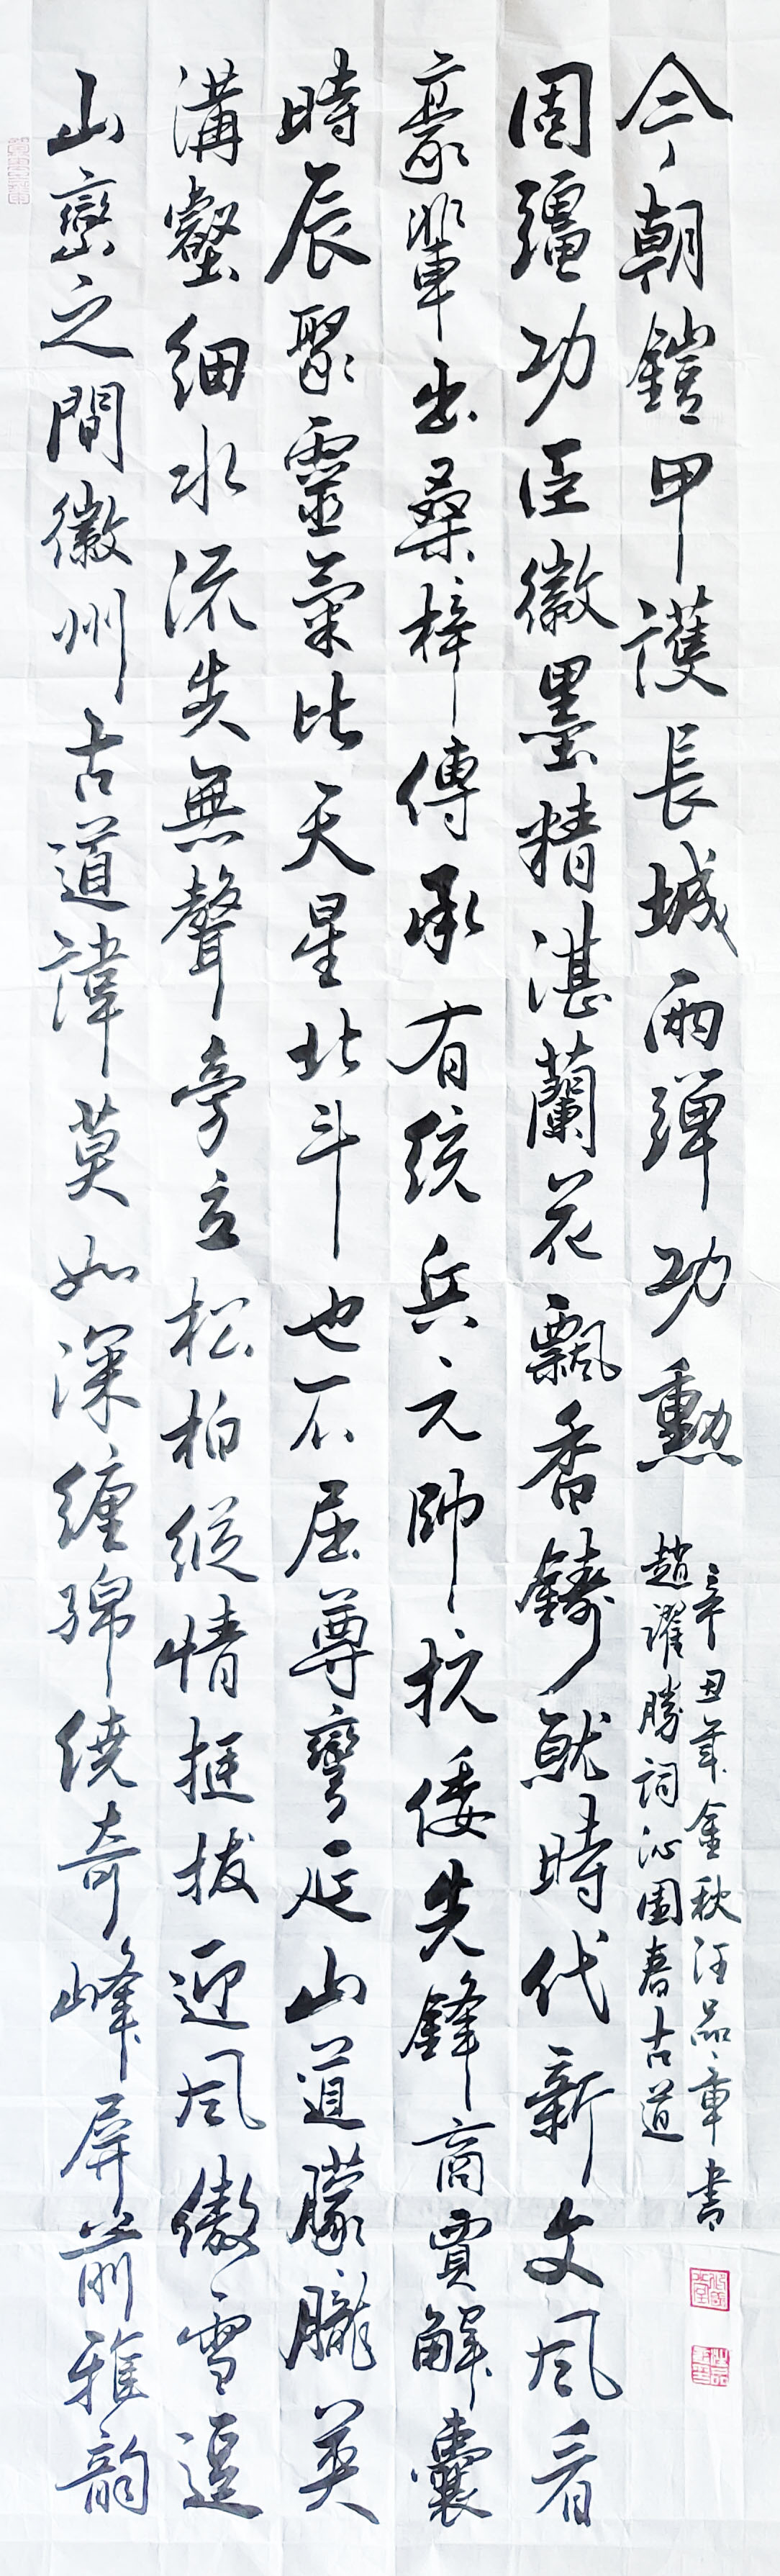 山巒之間徽州古道諱莫如深纏綿繞奇峰屏前雅韵
溝壑細水流失無聲旁立松柏縱情挺拔迎風傲雪逞
時辰聚靈氣比天星北斗也不屈尊彎延山道朦朧英
豪輩出桑梓傳承有統兵元帥抗倭先鋒商賈解囊
固疆功臣徽墨精湛蘭花飄香鑄就時代新文風看
今朝鎧甲護長城兩彈功勳
趙躍勝詞沁園春古道
辛丑年金秋汪品章書